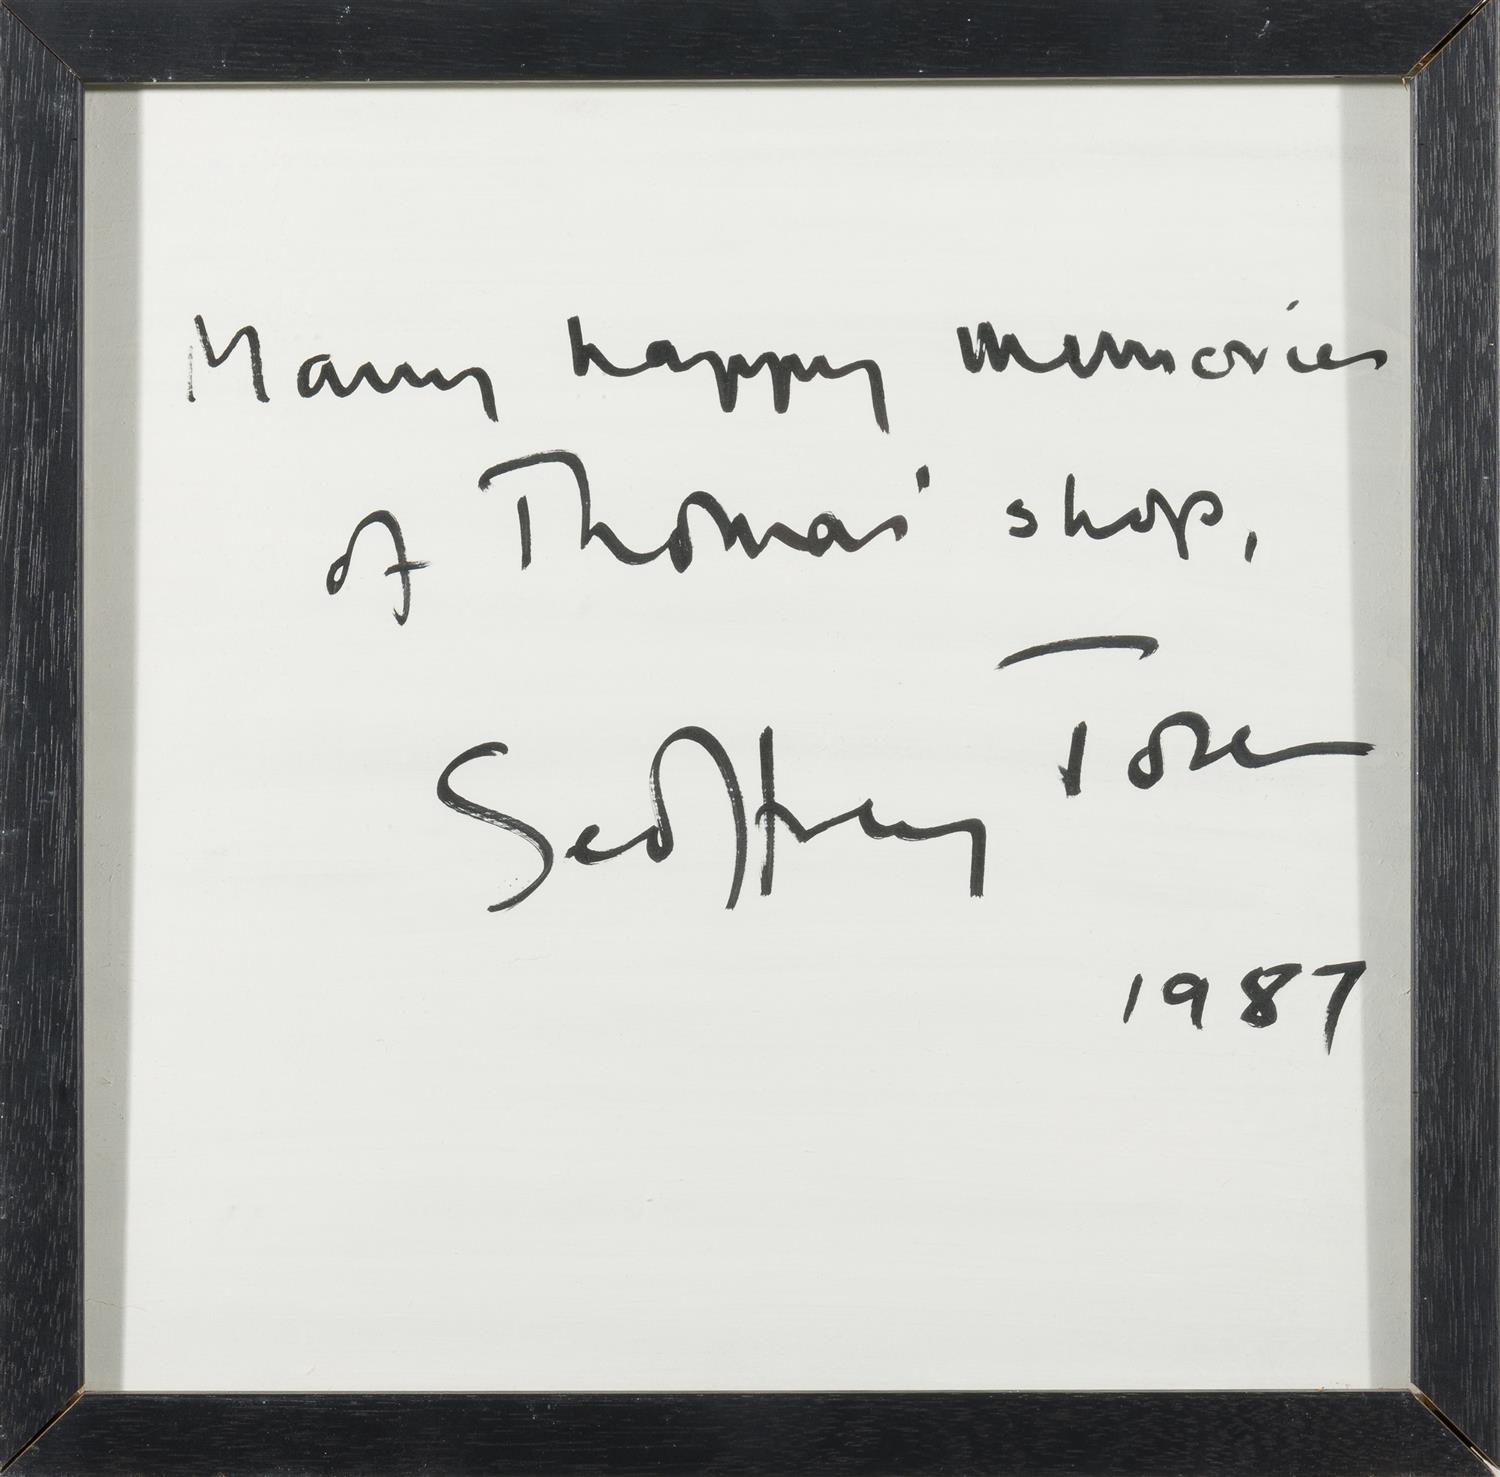 Many happy memories
of Thomas' shop,
Geoffrey Tozer
1987